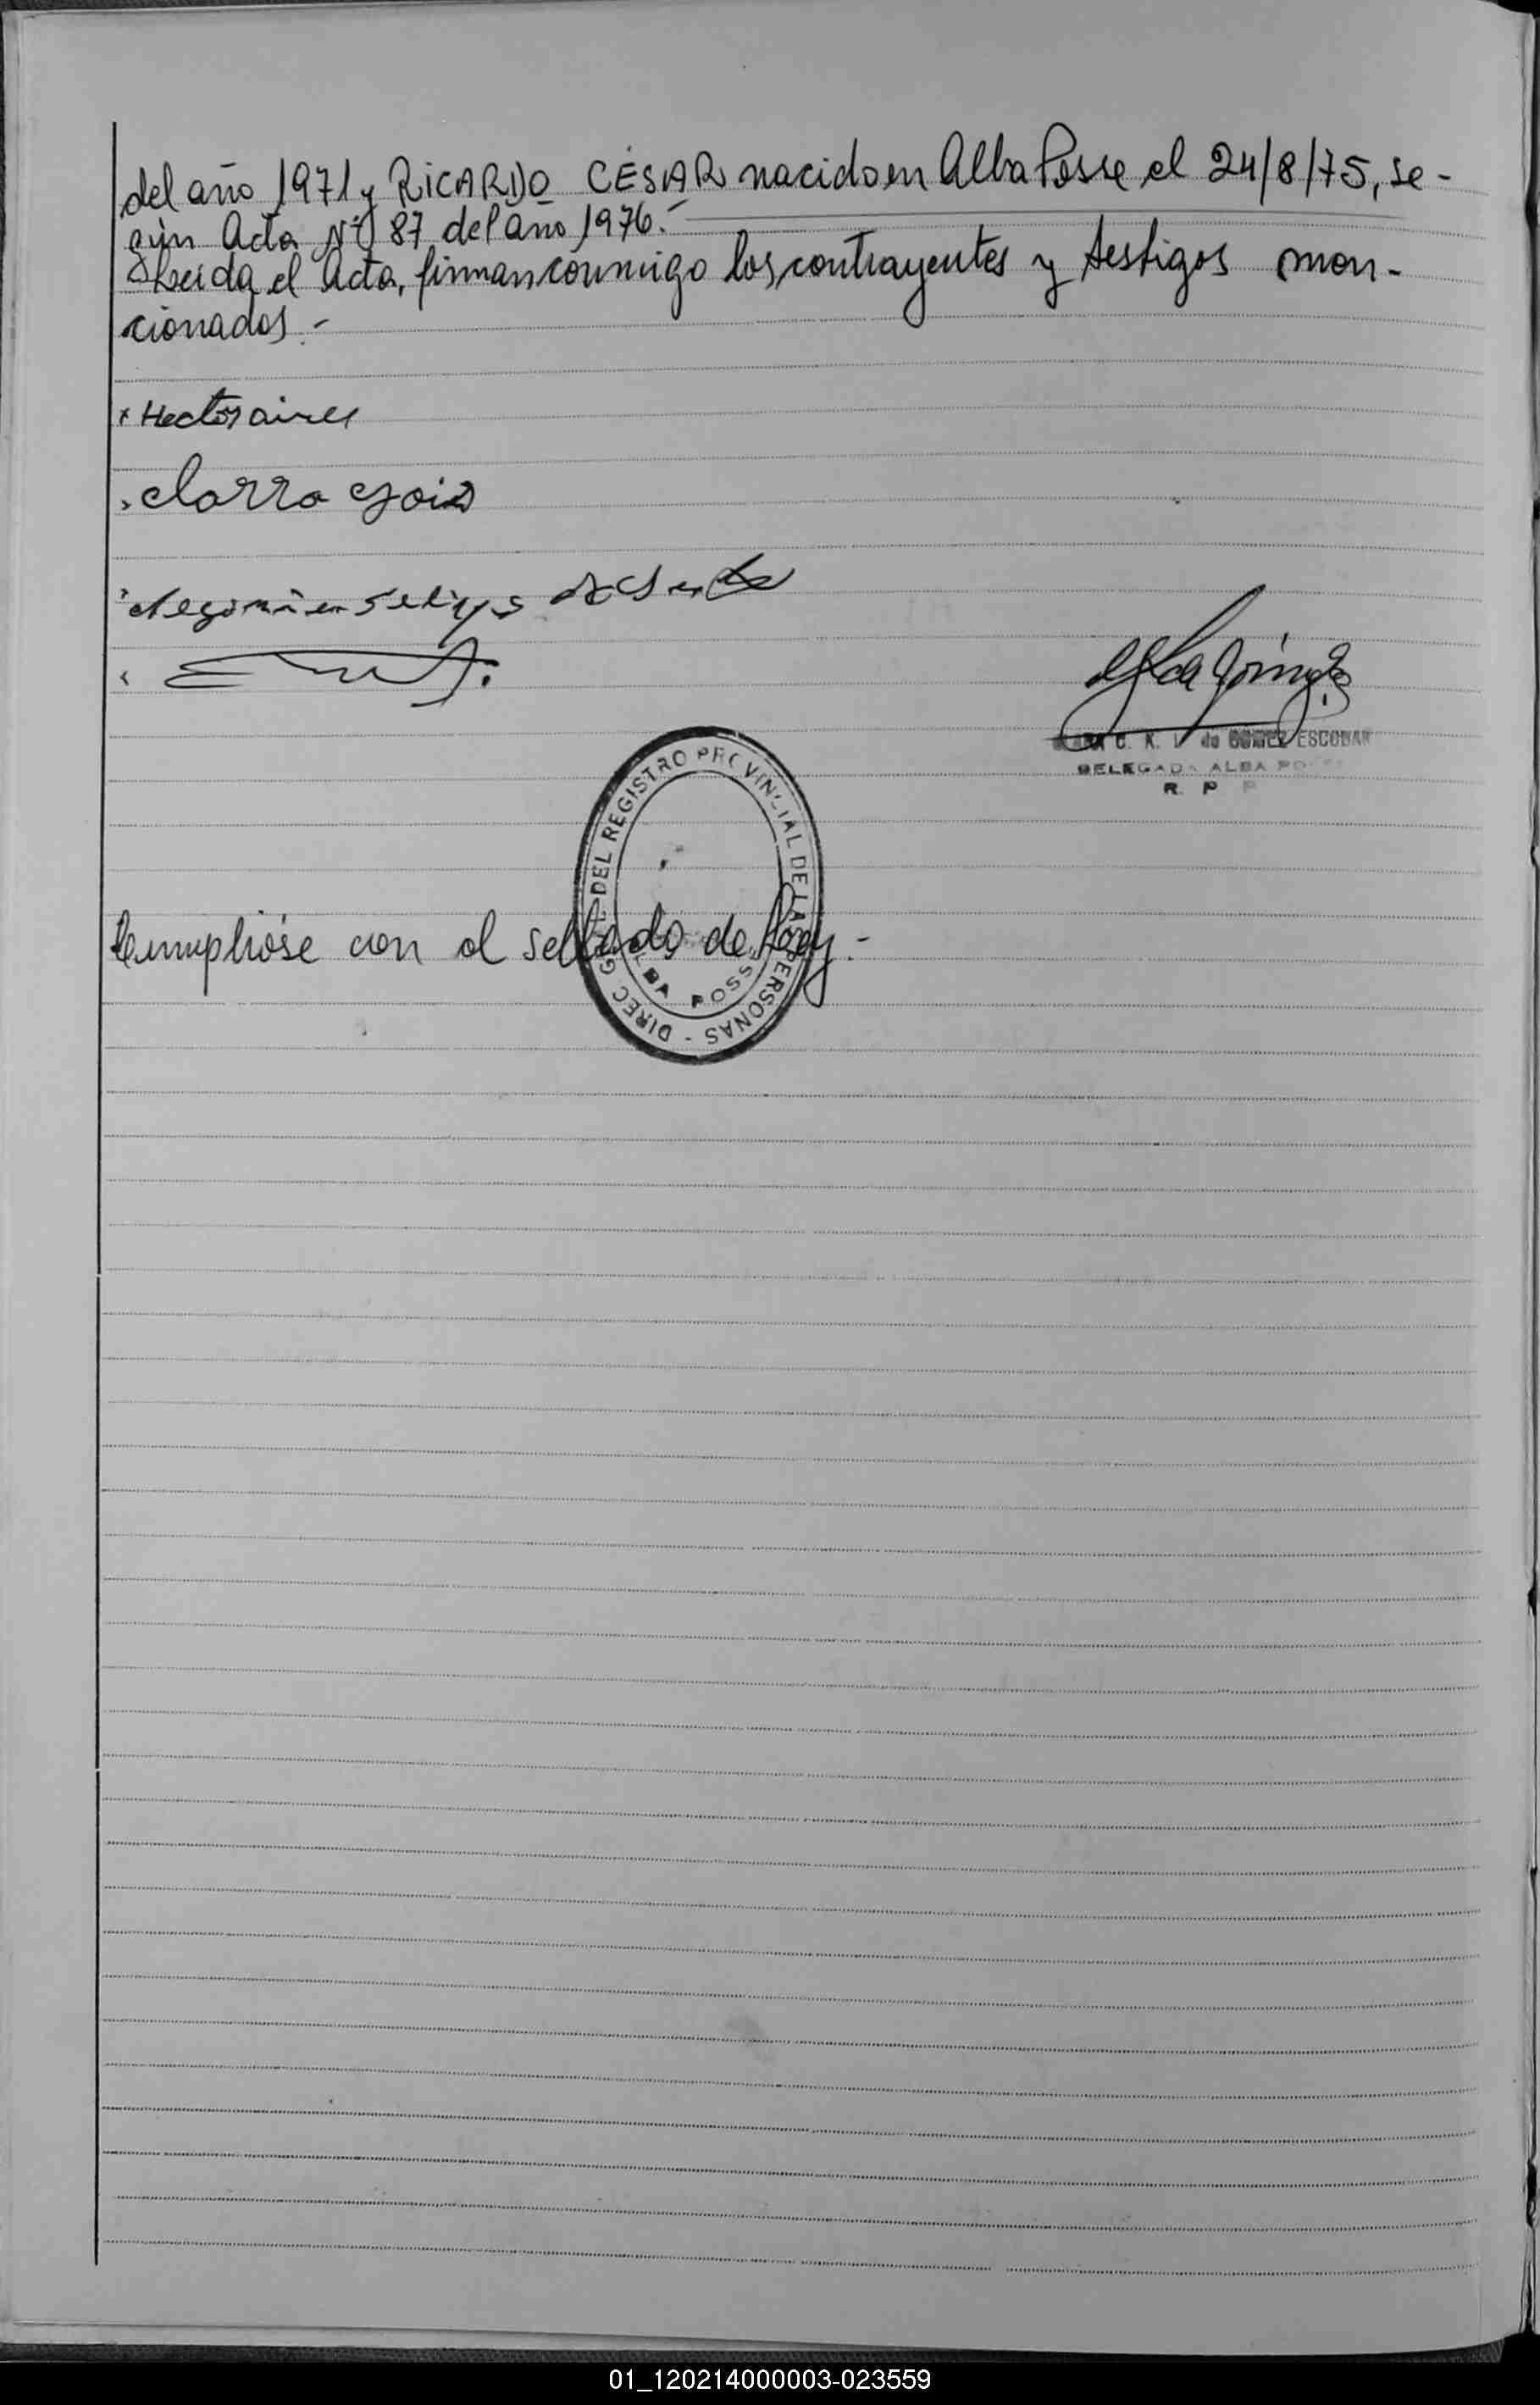 del año 1971 y RICARDO CÉSAR nacido en Alba Posse el 24/8/75, se-
gún Acta Nº 87 del año 1976.-
Leída el Acta, firman conmigo los contrayentes y testigos men-
cionados.-
x Hector aires
DELEGADA ALBA PO
R. P. P
DIREC G DEL REGISTRO PROVINCIAL DE LAS PERSONAS -
ALBA POSSE
Cumplióse con el sellado de Ley.-
01_120214000003-023559